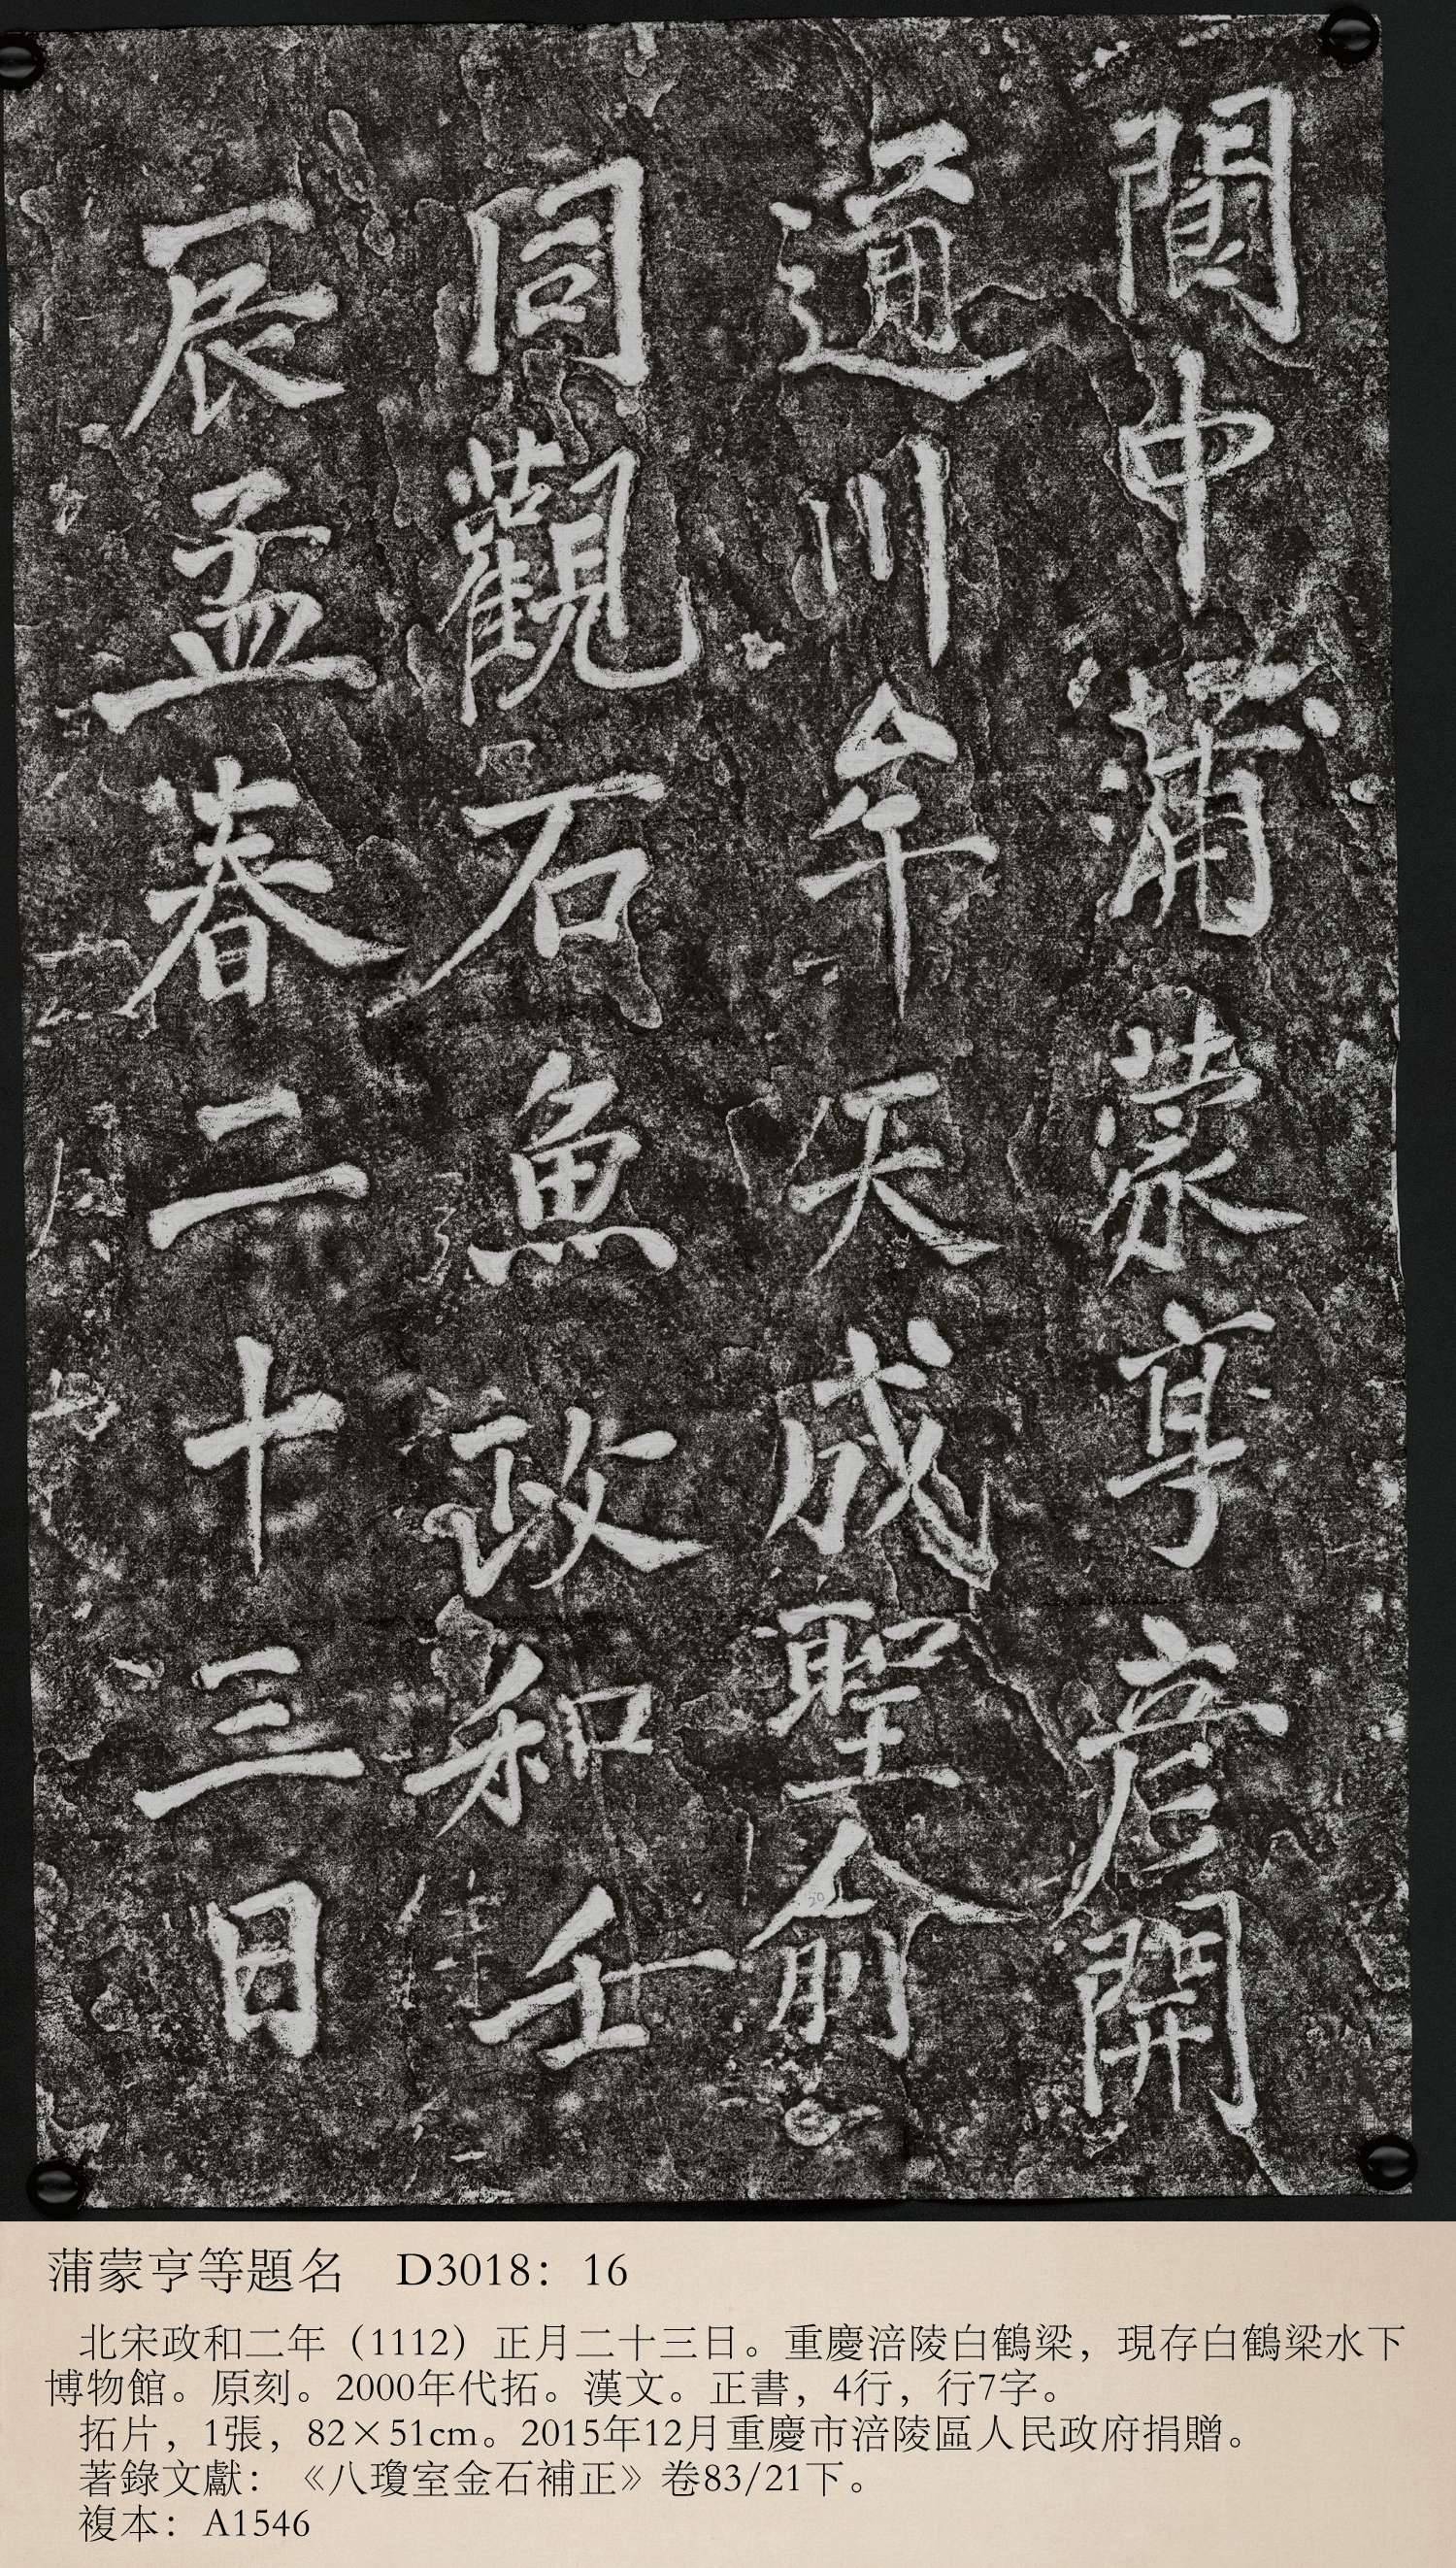 閬中蒲蒙亨彥開
通川牟天成聖俞
同觀石魚政和壬
辰孟春二十三日
蒲蒙亨等題名 D3018：16
北宋政和二年（1112）正月二十三日。重慶涪陵白鶴梁，現存白鶴梁水下
博物館。原刻。2000年代拓。漢文。正書，4行，行7字。
拓片，1張，82×51cm。2015年12月重慶市涪陵區人民政府捐贈。
著錄文獻：《八瓊室金石補正》卷83/21下。
複本：A1546